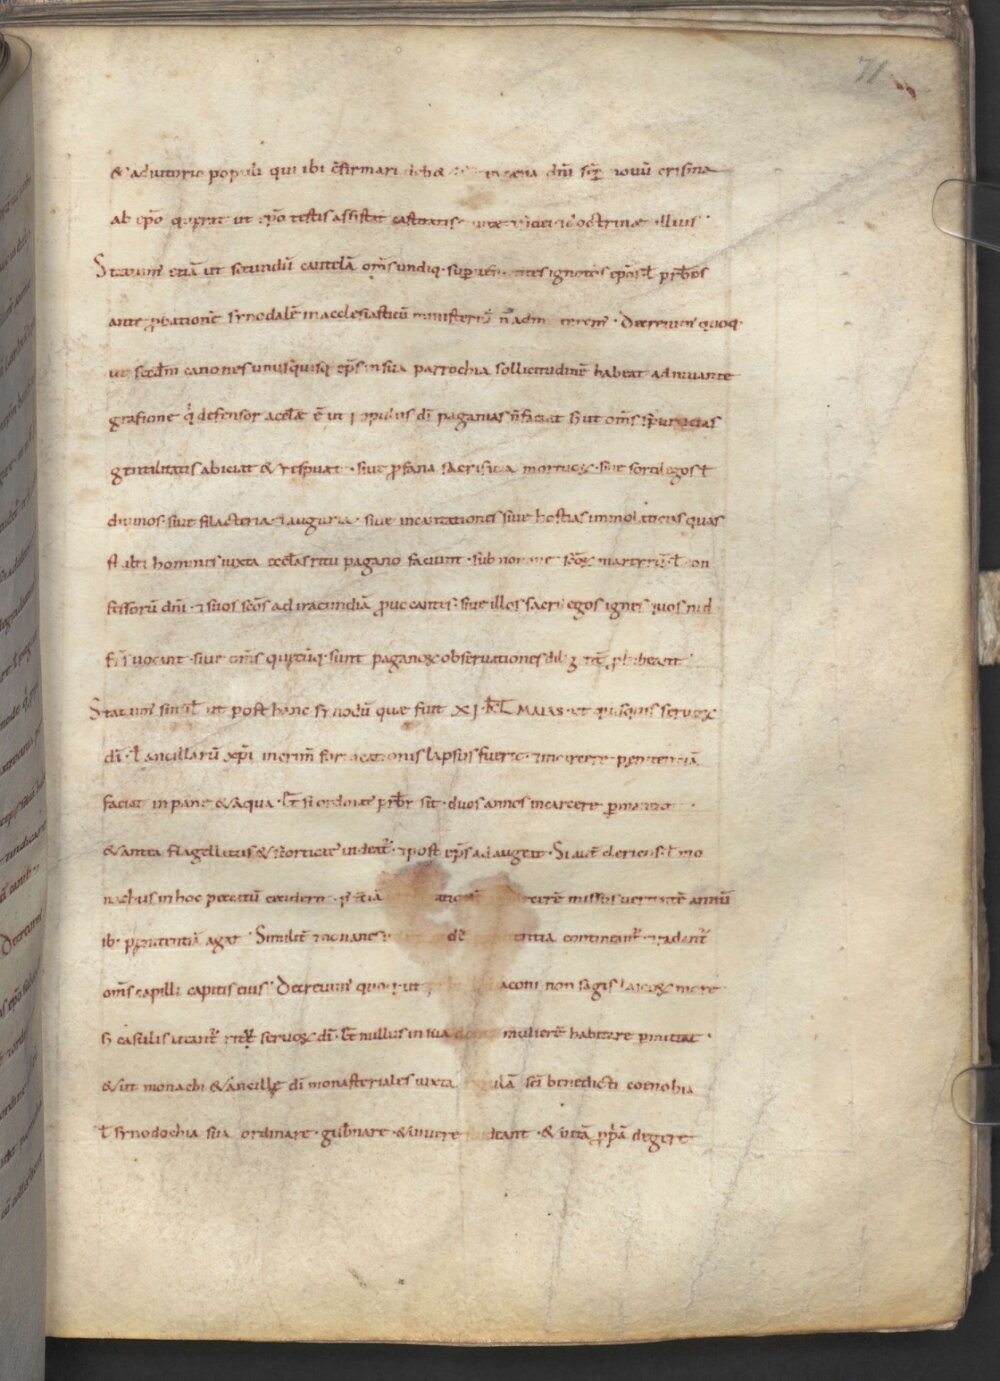 71
& adiutorio populi qui ibi c̄firmari deb& in caena dnī sēp nouū crisma
ab ep̄o querat ut ep̄o testis assistat castitatis & uitę & fidei & doctrinae illius ·
Statuim' etiā ut secundū cautelā om̄s undiq· superuenientes ignotos ep̄os ł prb̄os
ante ꝓbationē synodalē in aecclesiasticū ministeriū n̄ admitterem' · Decreuim' quoq·
ut scdm̄ canones unusquisq· ep̄s in sua parrochia sollicitudinē habeat adiuuante
grafione qui defensor aeccłae ē ut populus dī paganias n̄ faciat s; ut om̄s spurcicias
gentilitatis abiciat & respuat · siue ꝓfana sacrificia mortuoꝝ · siue sortilegos ł
diuinos · siue filacteria · & auguria · siue incantationes siue hostias immolaticias quas
stulti homines iuxta aeccłas ritu pagano faciunt · sub nomine scōꝝ martyrū ł con
fessorū dnī · & suos scōs ad iracundiā ꝓuocantes · siue illos sacrilegos ignes quos nied
fyr̄ uocant · siue om̄s quęcūq· sunt paganoꝝ obseruationes diligent̄ ꝓhibeant
Statuim' simił ut post hanc synodū quae fuit XI · KL MAIAS · et quisquis seruoꝝ
dī · ł ancillarū xp̄i in crim̄ fornicationis lapsus fuerit · in carcere penitentiā
faciat in pane & aqua · & si ordinat' prb̄r sit · duos annos in carcere permaneat ·
& antea flagellatus & scorticat' uideat' · & post ep̄s adaugeat · Si aut̄ clericus ł mo
nachus in hoc peccatū ceciderit · p' t̄ciā in carcerē missus uertentē annū
ib· penitentiā agat · Similit̄ & nonane contineant' & radant'
om̄s capilli capitis eius · Decreuim' quoq· ut diaconi non sagis laicoꝝ more
s; casulis utant' ritu seruoꝝ dī · & nullus in sua domo mulierē habitare permittat ·
& ut monachi & ancillę dī monasteriales iuxta regulā sc̄i benedicti coenobia
ł synodochia sua ordinare · gubnare · & uiuere studeant · & uitā ꝓp'ā degere